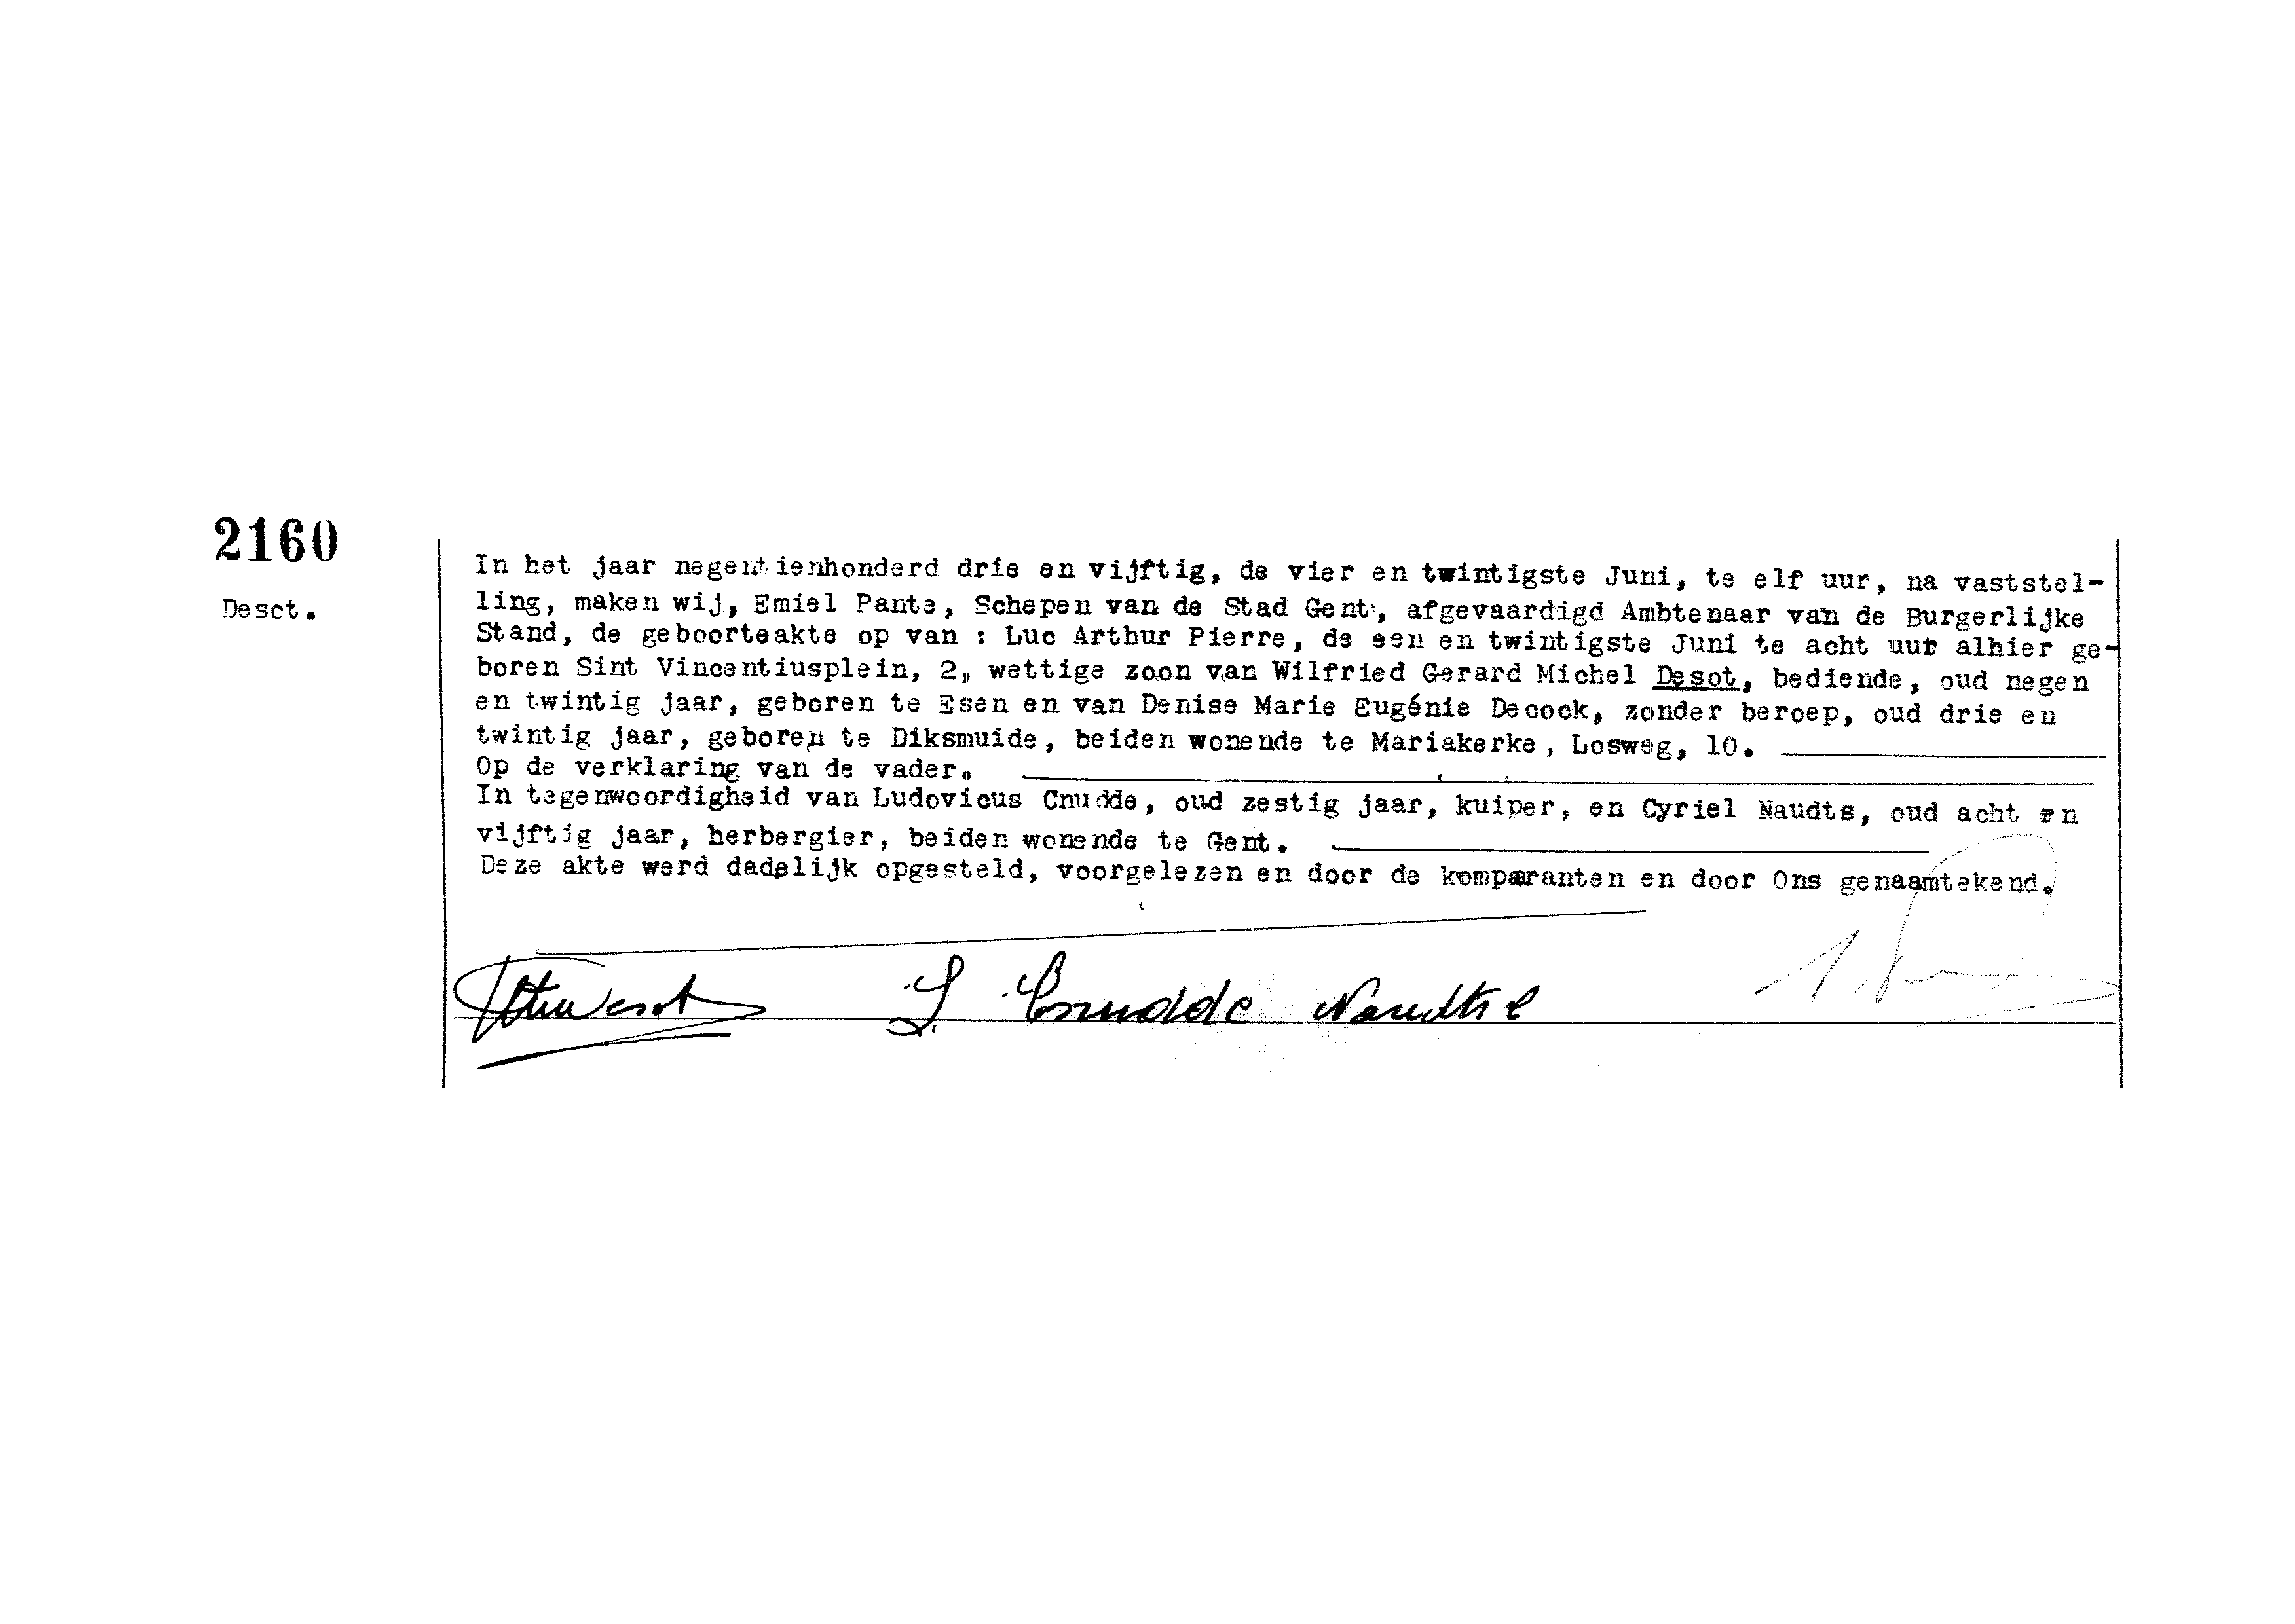 2160
Desot.
In het jaar negentienhonderd drie en vijftig, de vier en twintigste Juni, te elf uur, na vaststel-
ling, maken wij, Emiel Pante, Schepen van de Stad Gent, afgevaardigd Ambtenaar van de Burgerlijke
Stand, de geboorteakte op van : Luc Arthur Pierre, de een en twintigste Juni te acht uur alhier ge-
boren Sint Vincentiusplein, 2, wettige zoon van Wilfried Gerard Michel Desot, bediende, oud negen
en twintig jaar, geboren te Esen en van Denise Marie Eugénie Decock, zonder beroep, oud drie en
twintig jaar, geboren te Diksmuide, beiden wonende te Mariakerke, Losweg, 10.
Op de verklaring van de vader.
In tegenwoordigheid van Ludovicus Cnudde, oud zestig jaar, kuiper, en Cyriel Naudts, oud acht en
vijftig jaar, herbergier, beiden wonende te Gent.
Deze akte werd dadelijk opgesteld, voorgelezen en door de komparanten en door Ons genaamtekend.
L. Cnudde Naudts C